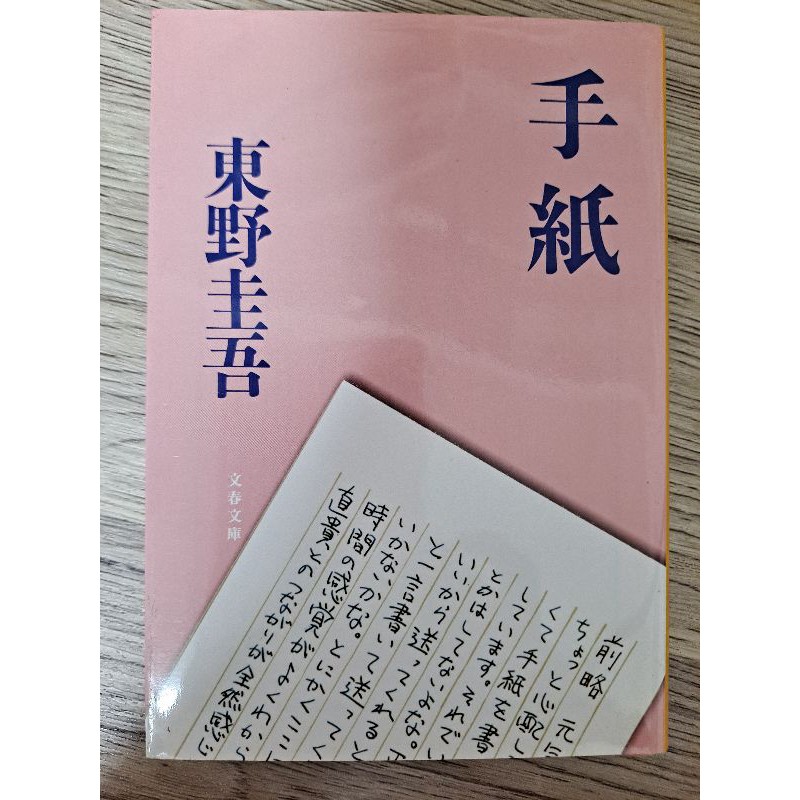 手紙
東野圭吾
文春文庫
前略 元
ちょっと心配
くて手紙を書
しています。それで
とかはしてないよな。
いいから送ってくれると
と一言書いて送って
いかないかな。
時間の感覚がよくわから
直貴とのつながりが全然感じ